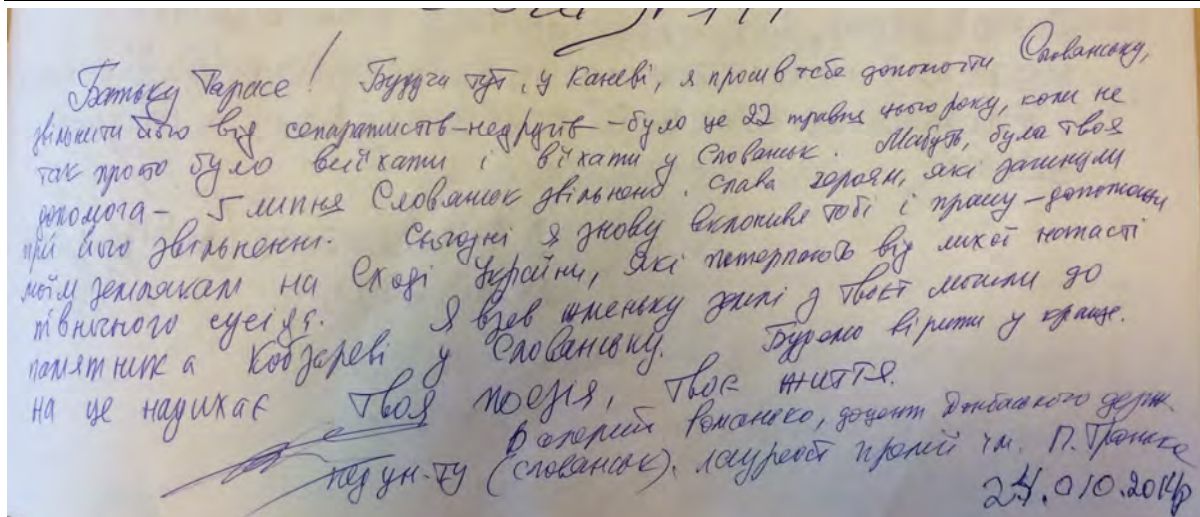 Батьку Тарасе! Будучи тут, у Каневі, я просив тебе допомогти Слованську,
звільнити його від сепаратистів-недругів - було це 22 травня цього року, коли не
так просто було виїхати і в'їхати у Слованськ. Мабуть, була твоя
допомога - 5 липня Слованськ звільнено. Слава героям, які загинули
при його звільненні. Сьогодні я знову вклонився тобі і прошу - допоможи
моїм землякам на Сході України, які потерпають від лихої напасті
північного сусіда. Я взяв жменьку землі з твоєї могили до
памятника Кобзареві у Слованську. Будемо вірити у краще.
на це надихає Твоя поезія, твоє життя.
Валерий Романько, доцент Донбаського держ.
пед ун-ту (Слованськ), лауреат премії ім. П. Тронька
2014р